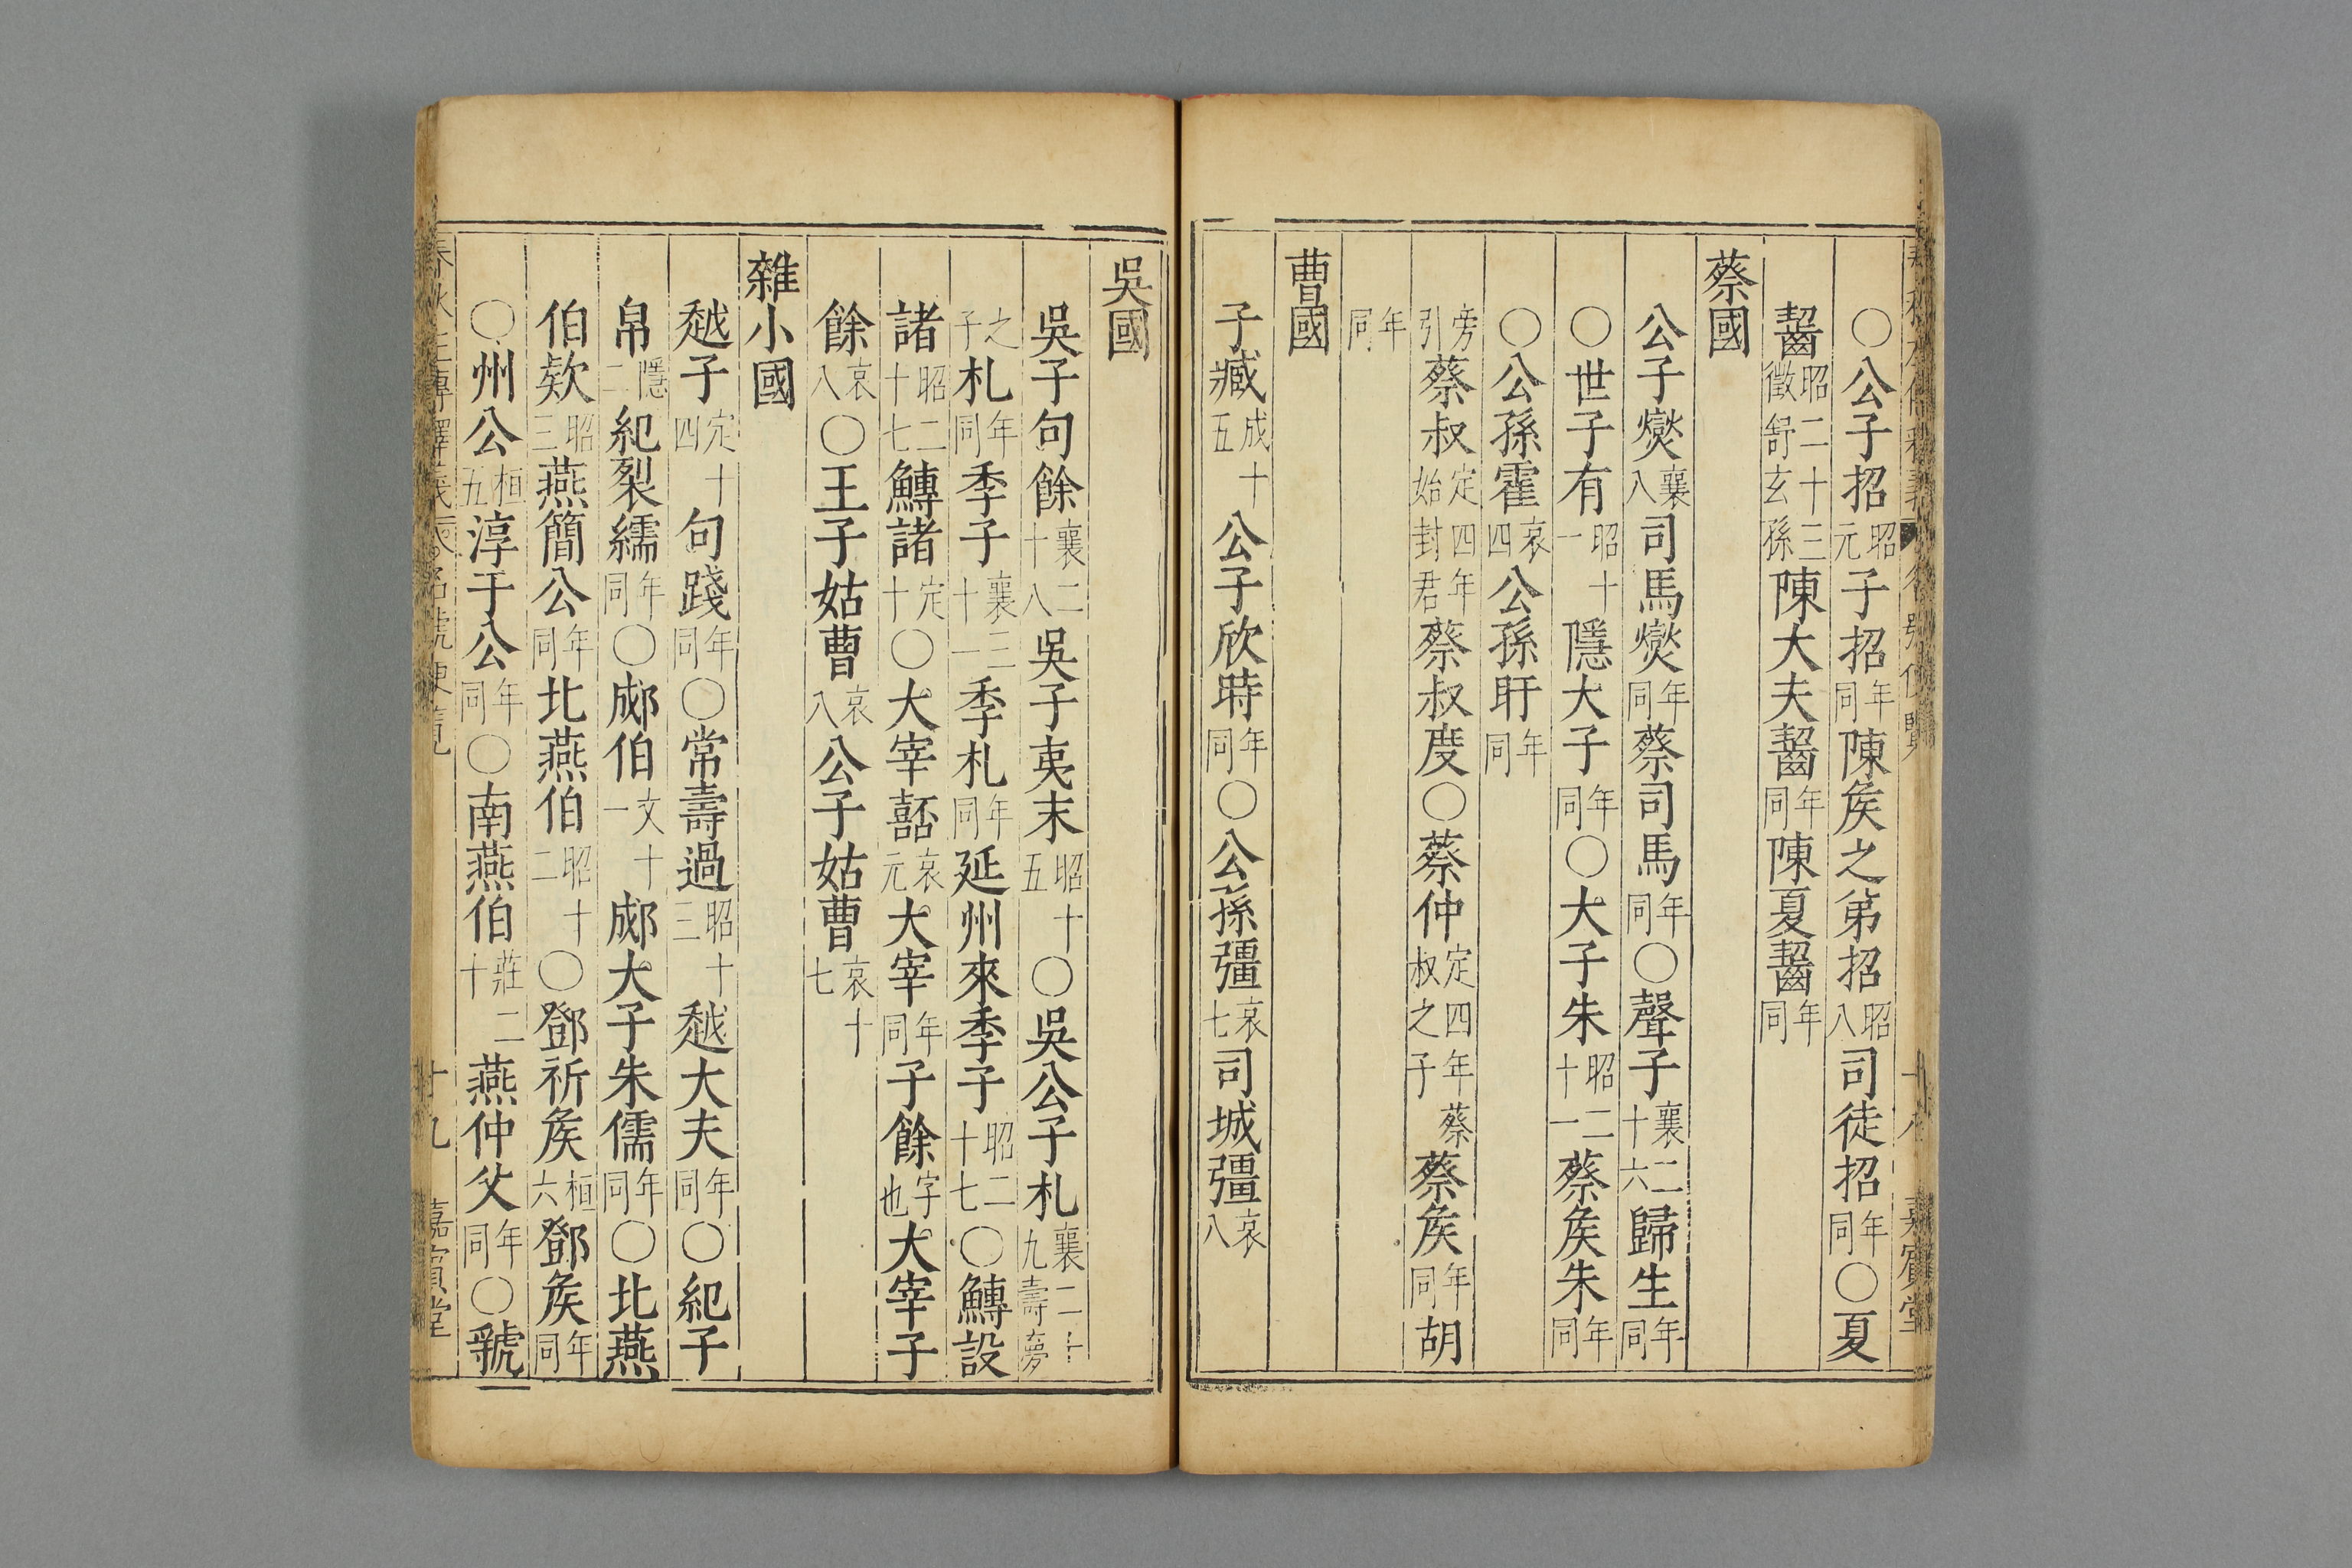 ○公子招昭元子招同年陳矦之弟招昭八司徒招同年○夏
齧昭二十三徵舒玄孫陳大夫齧同年陳夏齧同年
蔡國
公子燮襄八司馬燮同年蔡司馬同年○聲子襄二十六歸生同年
○世子有昭十一隱大子同年○大子朱昭二十一蔡矦朱同年
○公孫霍哀四公孫盱同年
旁引蔡叔定四年始封君蔡叔度○蔡仲定四年蔡叔之子蔡矦同年胡
同年
曹國
子臧成十五公子欣時同年○公孫彊哀七司城彊哀八
吳國
吳子句餘襄二十八吳子夷末昭十五○吳公子札襄二十九壽夢
之子札同年季子襄三十一季札同年延州來季子昭二十七○鱄設
諸昭二十七鱄諸定十○大宰嚭哀元大宰同年子餘字也大宰子
餘哀八○王子姑曹哀八公子姑曹哀十七
雜小國
越子定十四句踐同年○常壽過昭十三越大夫同年○紀子
帛隱二紀裂繻同年○郕伯文十一郕大子朱儒同年○北燕
伯欵昭三燕簡公同年北燕伯昭十二○鄧祈矦桓六鄧矦同年
○州公桓五淳于公同年○南燕伯莊二十燕仲父同年○虢
廿九 嘉賓堂